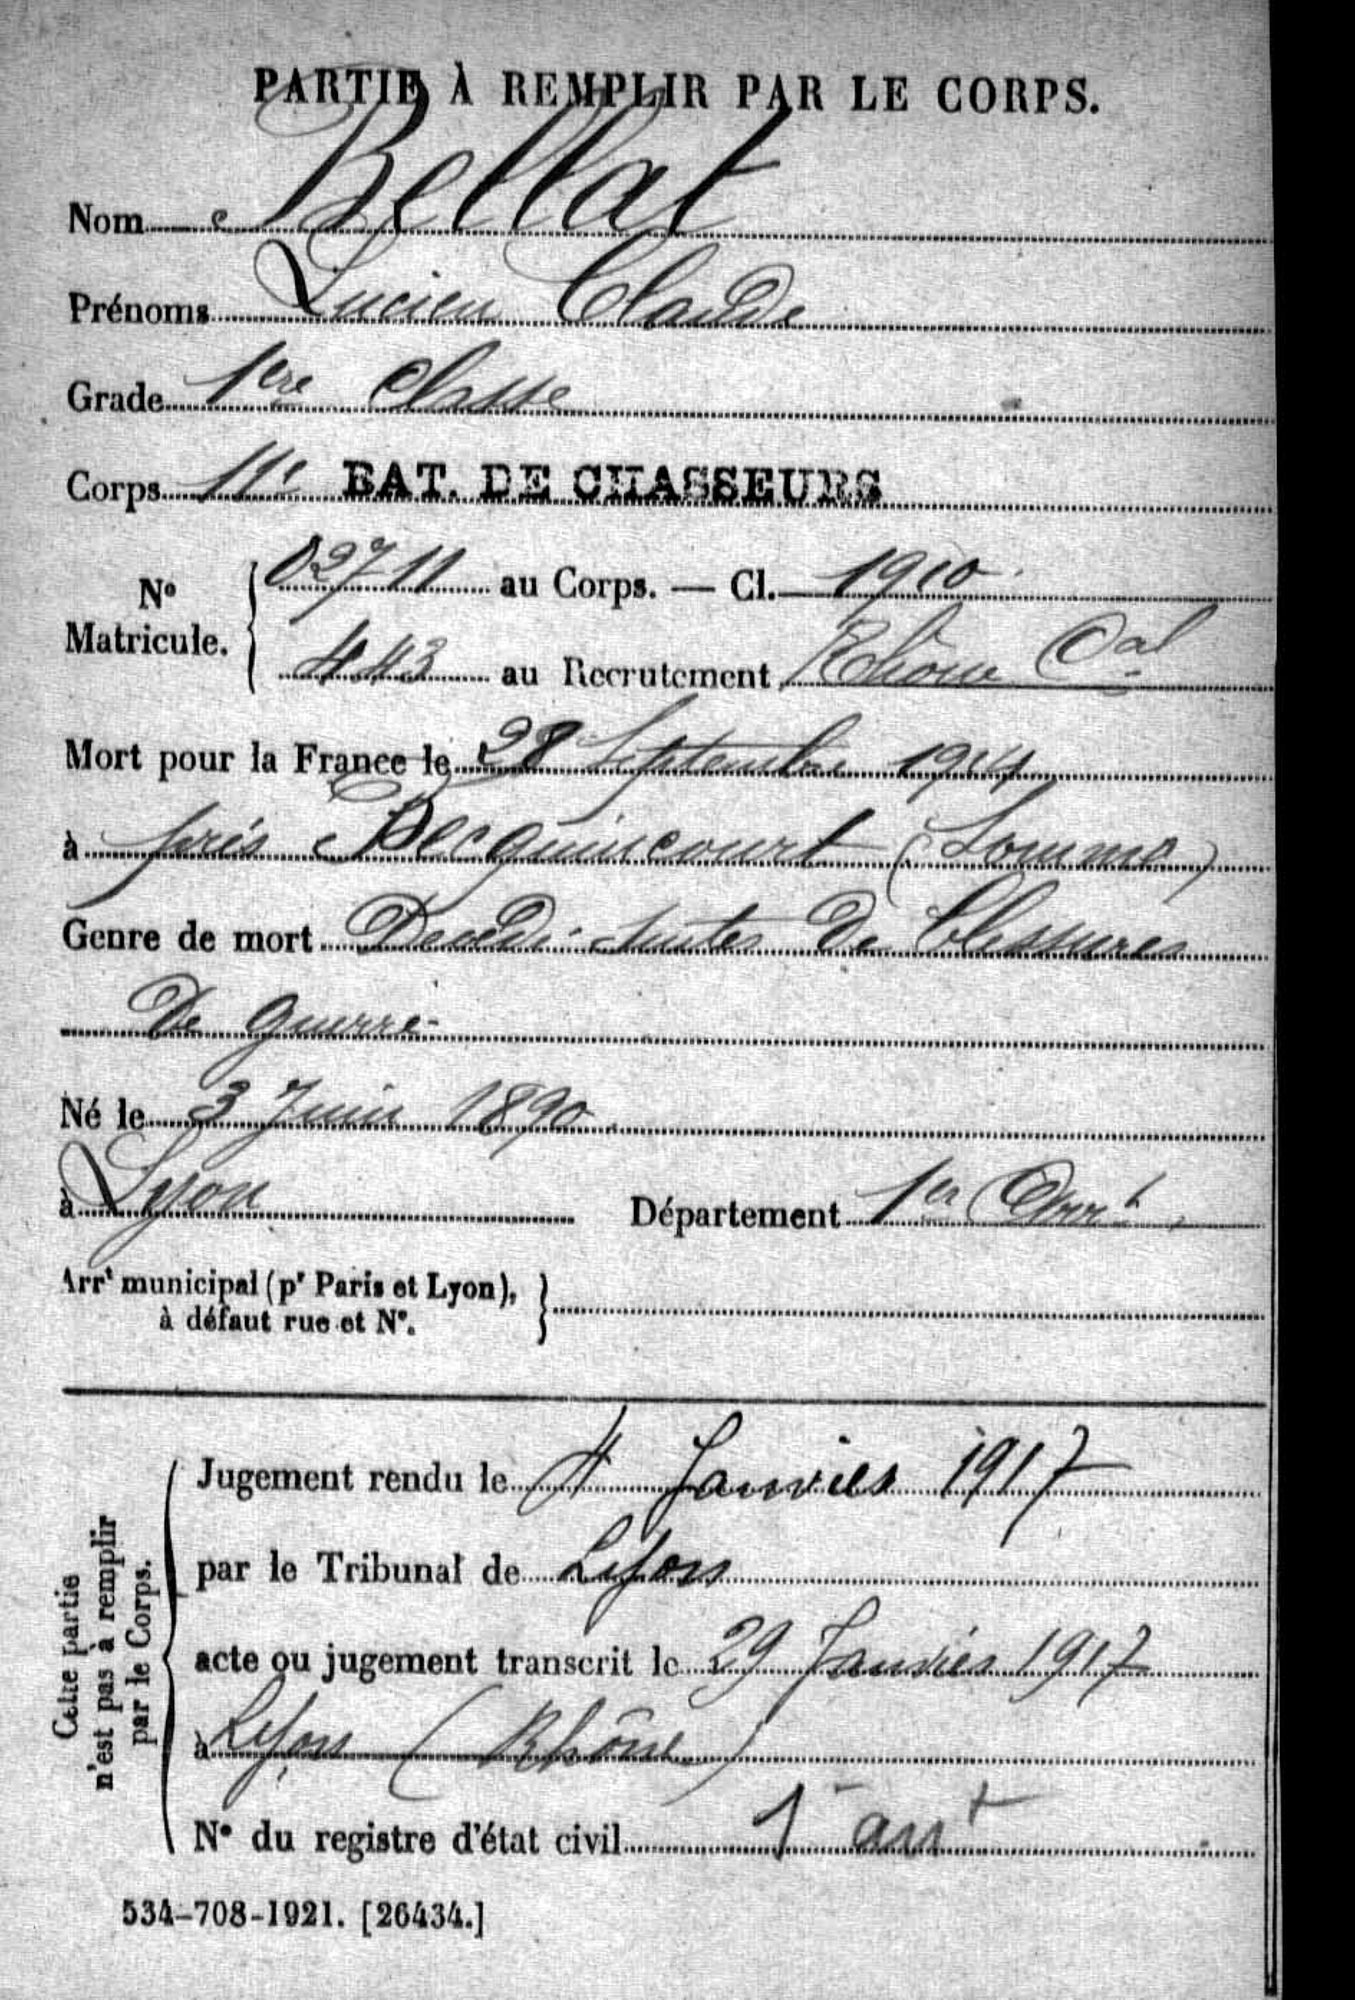 PARTIE À REMPLIR PAR LE CORPS.
Nom Bellat
Prénoms Lucien Claude
Grade 1ere Classe
Corps 11e BAT. DE CHASSEURS
No Matricule. 02711 au Corps. — Cl. 1910
443 au Recrutement Rhône Cal
Mort pour la France le 28 Septembre 1914
à près Becquincourt (Somme)
Genre de mort Décédé suites de blessures
de guerre
Né le 3 Juin 1890
à Lyon Département 1er Arrt
Arrt municipal (pr Paris et Lyon),
à défaut rue et No.
Cette partie
n'est pas à remplir
par le Corps.
Jugement rendu le 4 Janvier 1917
par le Tribunal de Lyon
acte ou jugement transcrit le 29 Janvier 1917
à Lyon (Rhône)
No du registre d'état civil 1 arrt
534-708-1921. [26434.]